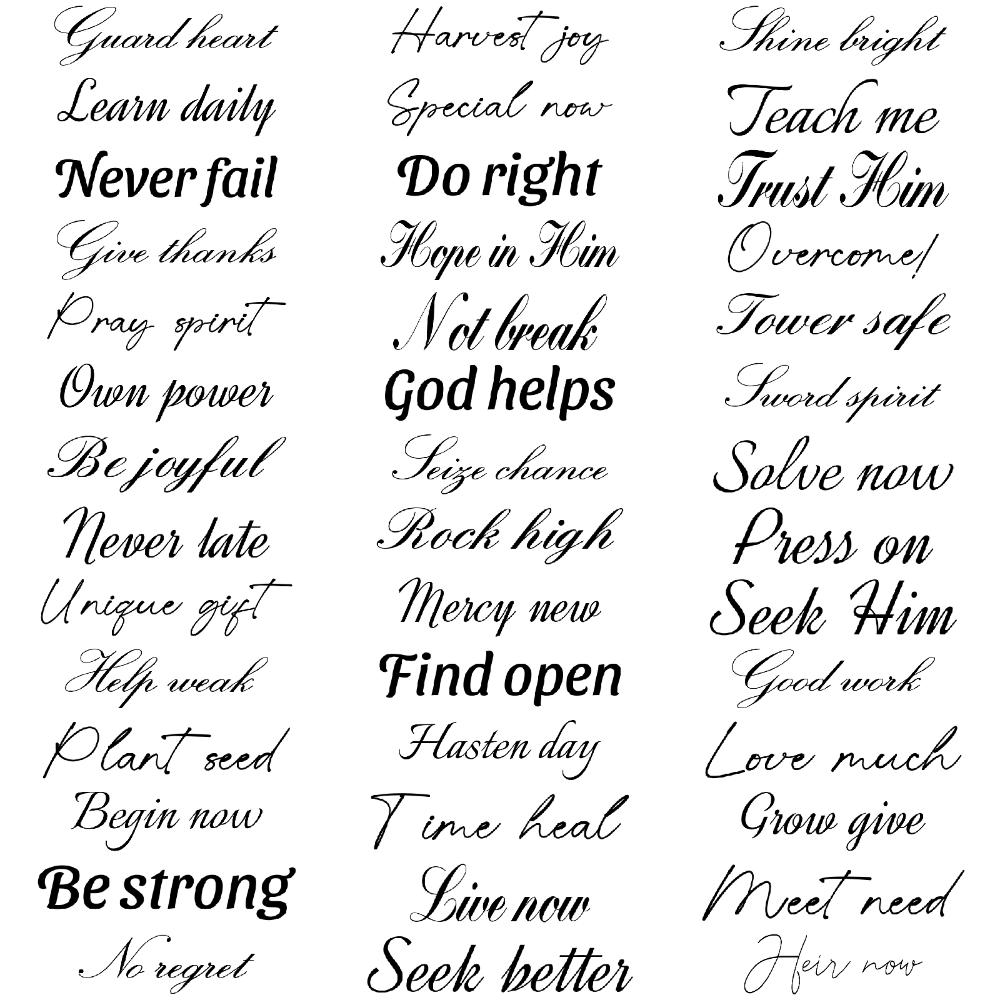 Guard heart
Harvest joy
Shine bright
Learn daily
Special now
Teach me
Never fail
Do right
Trust Him
Give thanks
Hope in Him
Overcome!
Pray spirit
Not break
Tower safe
Own power
God helps
Sword spirit
Be joyful
Seize chance
Solve now
Never late
Rock high
Press on
Unique gift
Mercy new
Seek Him
Help weak
Find open
Good work
Plant seed
Hasten day
Love much
Begin now
Time heal
Grow give
Be strong
Live now
Meet need
No regret
Seek better
Heir now